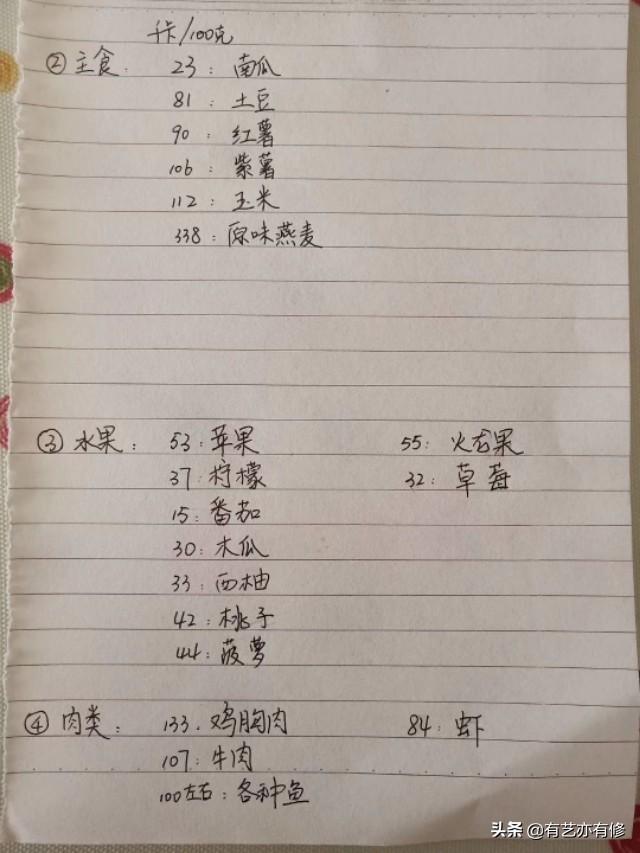 千卡/100克
② 主食: 23: 南瓜
81: 土豆
90: 红薯
106: 紫薯
112: 玉米
338: 原味燕麦
③ 水果: 53: 苹果 55: 火龙果
37: 柠檬 32: 草莓
15: 番茄
30: 木瓜
33: 西柚
42: 桃子
44: 菠萝
④ 肉类: 133. 鸡胸肉 84: 虾
107: 牛肉
100左右: 各种鱼
头条 @有艺亦有修